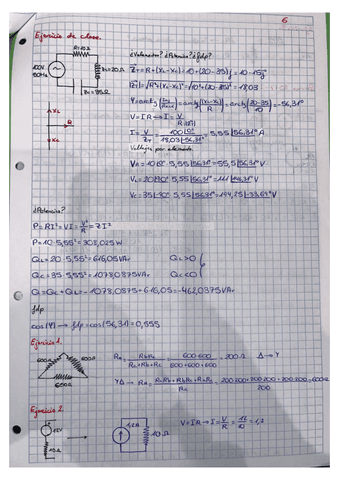 6
Ejercicio de clase.
R=10Ω
100V
60Hz
XL=20Ω
Xc=35Ω
¿Valenator? ¿Potencia? ¿fdp?
ZT=R+(XL-XC)j=10+(20-35)j=10-15j
|ZT|=√R²+(XL-XC)²=√10²+(20-35)²=18,03
(XL-XC)/R
(20-35)/10
=-56,31°
V=IR→I=V/R
I=V/ZT=100|0°/18,03|-56,31°=5,55|56,31° A
Voltajes por elemento.
VR=10|0° 5,55|56,31°=55,5|56,31° V
VL=20|90° 5,55|56,31°=111|146,31° V
VC=35|-90° 5,55|56,31°=194,25|-33,69° V
XL
R
XC
¿Potencia?
P=RI²=VI=V²/R=ZI²
P=10·5,55²=308,025W
QL=20·5,55²=616,05VAr QL>0
QC=35·5,55²=1078,0875VAr QC<0
Q=QC+QL=-1078,0875+616,05=-462,0375VAr
fdp
cos(φ)→fdp=cos(56,31)=0,555
Ejercicio 1
600Ω 600Ω
600Ω
600·600/600+600+600=200Ω Δ→Y
YΔ→
200·200+200·200+200·200/200=600Ω
Ejercicio 2
12V
10Ω
1,2A
10Ω
V=IR→I=V/R=12/10=1,2